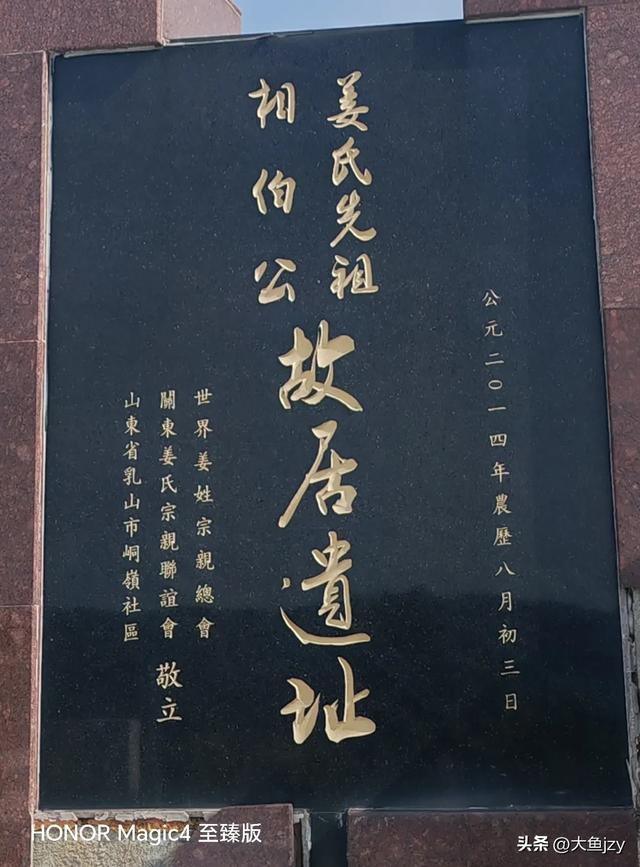 公元二〇一四年農歷八月初三日
姜氏先祖
相伯公
故居遺址
世界姜姓宗親總會
關東姜氏宗親聯誼會
山東省乳山市峒嶺社區
敬立
HONOR Magic4 至臻版
头条 @大鱼jzy